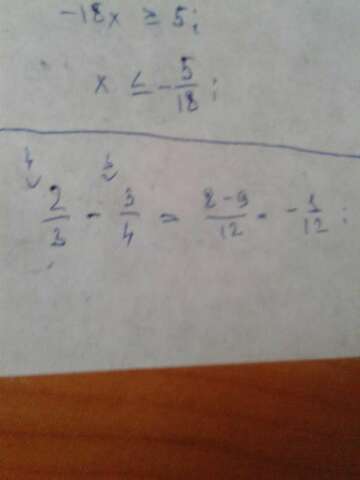 -18x ≥ 5;
x ≤ -5/18;
4 3
2/3 - 3/4 = 8-9/12 = -1/12;